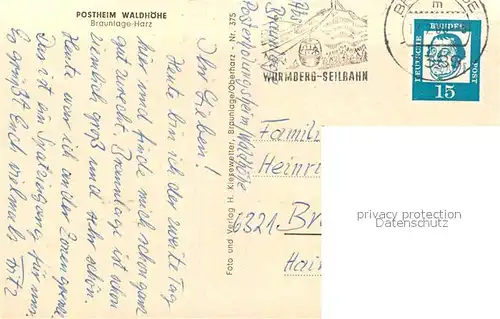 POSTHEIM WALDHÖHE
Braunlage-Harz
Ihr Lieben!
Heute bin ich der zweite Tag
hier und finde mich schon ganz
gut zurecht. Braunlage ist schon
ziemlich groß und sehr schön.
Heute war ich an der Zonengrenze.
Das ist ein Spaziergang für uns.
Es grüßt Euch vielmals Fritz
Foto und Verlag H. Kiesewetter, Braunlage/Oberharz - Nr. 375
Braunlage
Waldhöhe
WURMBERG-SEILBAHN
DEUTSCHE BUNDESPOST
15
Famili
Heinri
6321 Br
Hai
privacy protection
Datenschutz